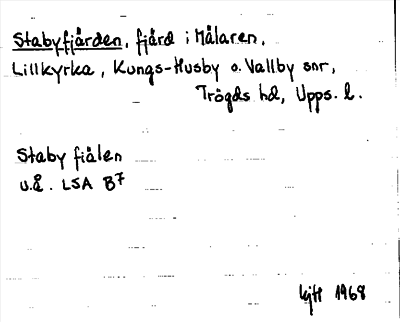 Stabyfjärden, fjärd i Mälaren,
Lillkyrka, Kungs-Husby o. Vallby snr,
Trögds hd, Upps. l.
Staby fiälen
u.å. LSA B7
1968